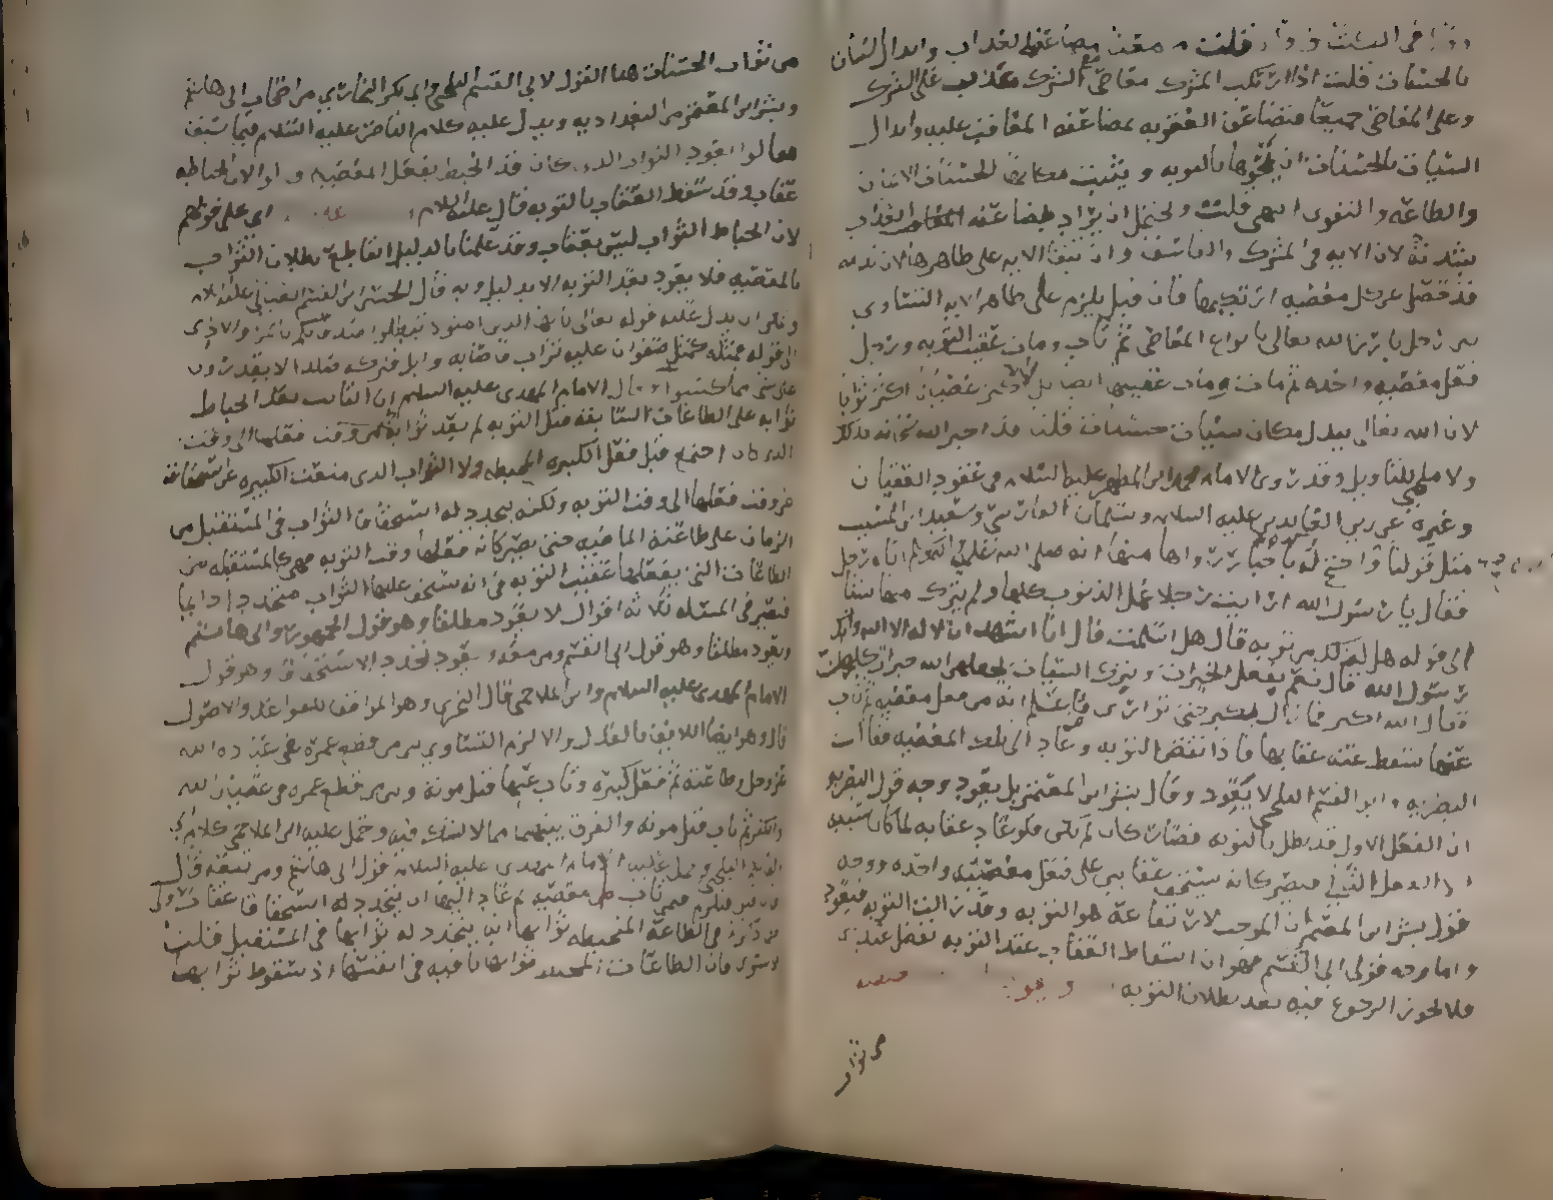 قلت معنى مضاعفة العذاب وابدال السيات
بالحسنات قلت اذا ارتكب المشرك معاصي مع الشرك عذب على الشرك
وعلى المعاصي جميعا فتضاعف العقوبه لمضاعفه المعاقب عليه وابدال
السيات بالحسنات ان يمحوها بالتوبه ويثبت مكانها الحسنات الايمان
والطاعه والتقوى انتهى قلت ويحتمل ان يراد بمضاعفه العذاب
شدته لان الايه في المشرك والفاسق وان تبقى الايه على ظاهرها لان
قد فصل عن كل معصيه ارتكبها فان قيل يلزم على ظاهر الايه التساوي
بين رجل بارز الله تعالى بانواع المعاصي ثم تاب ومات عقيب التوبه ورجل
فعل معصيه واحده ثم مات عقيبها ايضا بل الاكثر عصيانا اكثر ثوابا
لان الله تعالى يبدل مكان سيات حسنات قلت قد اخبر الله سبحانه بذلك
ولا ملجي للتاويل وقد روى الامام محمد ابن المطهر عليه السلام في عقود العقيان
وغيره عن زين العابدين عليه السلام وسلمان الفارسي وسعيد ابن المسيب
مثل قولنا واحتج له باخبار رواها منها انه صلى الله عليه واله وسلم اتاه رجل
فقال يا رسول الله ارايت رجلا عمل الذنوب كلها ولم يترك منها شيئا
الى قوله هل لذلك من توبه قال هل اسلمت قال انا اشهد ان لا اله الا الله وانك
رسول الله قال نعم يفعل الخيرات ويترك السيات يجعلهن الله خيرات كلهن
قال الله اكبر فما زال يكبر حتى توارى فاعلم انه من فعل معصيه ثم تاب
عنها سقط عنه عقابها فاذا نقض التوبه وعاد الى تلك المعصيه فقالت
البصريه وابو القسم البلخي لا يعود وقال بشر ابن المعتمر بل يعود وجه قول البصريه
ان الفعل الاول قد بطل بالتوبه فصار كان لم يكن فلو عاد عقابه لما كان سببه
الا الفعل الثاني فيصير كانه يستحق عقابين على فعل معصيه واحده ووجه
قول بشر ابن المعتمر ان الموجب لارتفاعه هو التوبه وقد زالت التوبه فيعود
واما وجه قول ابي القسم فهو ان اسقاط العقاب عند التوبه تفضل عنده
فلا يجوز الرجوع فيه بعد بطلان التوبه
من ثواب
من ثواب الحسنات هذا القول لابي القسم البلخي وابي بكر البخاري من اصحاب ابي هاشم
وبشر ابن المعتمر من البغداديه ويدل عليه كلام القاضي عليه السلام فيما سبق
فقالوا يعود الثواب الذي كان قد انحبط بفعل المعصيه
عقاب وقد سقط العقاب بالتوبه قال عليه السلام على قولهم
لان انحباط الثواب ليس بعقاب وقد علمنا بالدليل القاطع بطلان الثواب
بالمعصيه فلا يعود بعد التوبه الا بدليل وبه قال الحسين ابن القسم العياني عليه السلام
يدل عليه قوله تعالى يا ايها الذين امنوا لا تبطلوا صدقاتكم بالمن والاذى
الى قوله فمثله كمثل صفوان عليه تراب فاصابه وابل فتركه صلدا لا يقدرون
على شي مما كسبوا وقال الامام المهدي عليه السلام ان التائب بعد انحباط
ثوابه على الطاعات السابقه قبل التوبه لم يعد ثوابه من وقت فعلها الى وقت
الذي كان اجتمع قبل فعل الكبيره المحبطه ولا الثواب الذي منعت الكبيره عن استحقاقه
من وقت فعلها الى وقت التوبه ولكنه يتجدد له استحقاق الثواب في المستقبل من
الزمان على طاعته الماضيه حتى يصير كانه فعلها وقت التوبه فهي كالمستقبله من
الطاعات التي يفعلها عقيب التوبه في انه يستحق عليها الثواب متجددا دايما
فتصير في المسئله ثلاثه اقوال لا يعود مطلقا وهو قول الجمهور وابي هاشم
ويعود مطلقا وهو قول ابي القسم ومن معه ويعود تجدد الاستحقاق وهو قول
الامام المهدي عليه السلام وابن الملاحمي قال النجري وهو الموافق للقواعد والاصول
قال وهو ايضا اللايق بالعدل والا لزم التساوي بين من قطع عمره في عباده الله
عز وجل وطاعته ثم فعل كبيره وتاب عنها قبل موته وبين من قطع عمره في عصيان الله
والكفر ثم تاب قبل موته والفرق بينهما مما لا شك فيه وحمل عليه ابن الملاحمي كلام ابي
القسم البلخي وحمل عليه الامام المهدي عليه السلام قول ابي هاشم ومن تبعه قال
فان قيل فيلزم فيمن تاب من معصيه ثم عاد اليها ان يتجدد له استحقاق عقاب الاولى
من ذكره في الطاعه المنحبطه ثوابها انه يتجدد له ثوابها في المستقبل قلت
لا سوى فان الطاعات المحبط ثوابها باقيه في انفسها اذ سقوط ثوابها